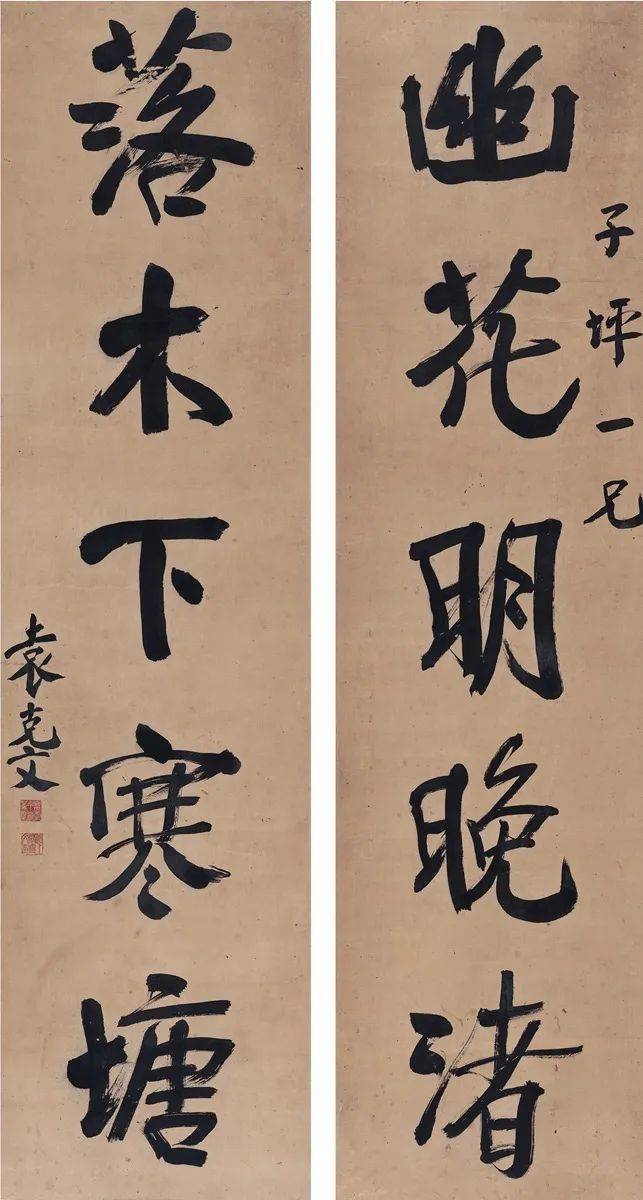 幽花明晚渚
子坪一兄
落木下寒塘
袁克文